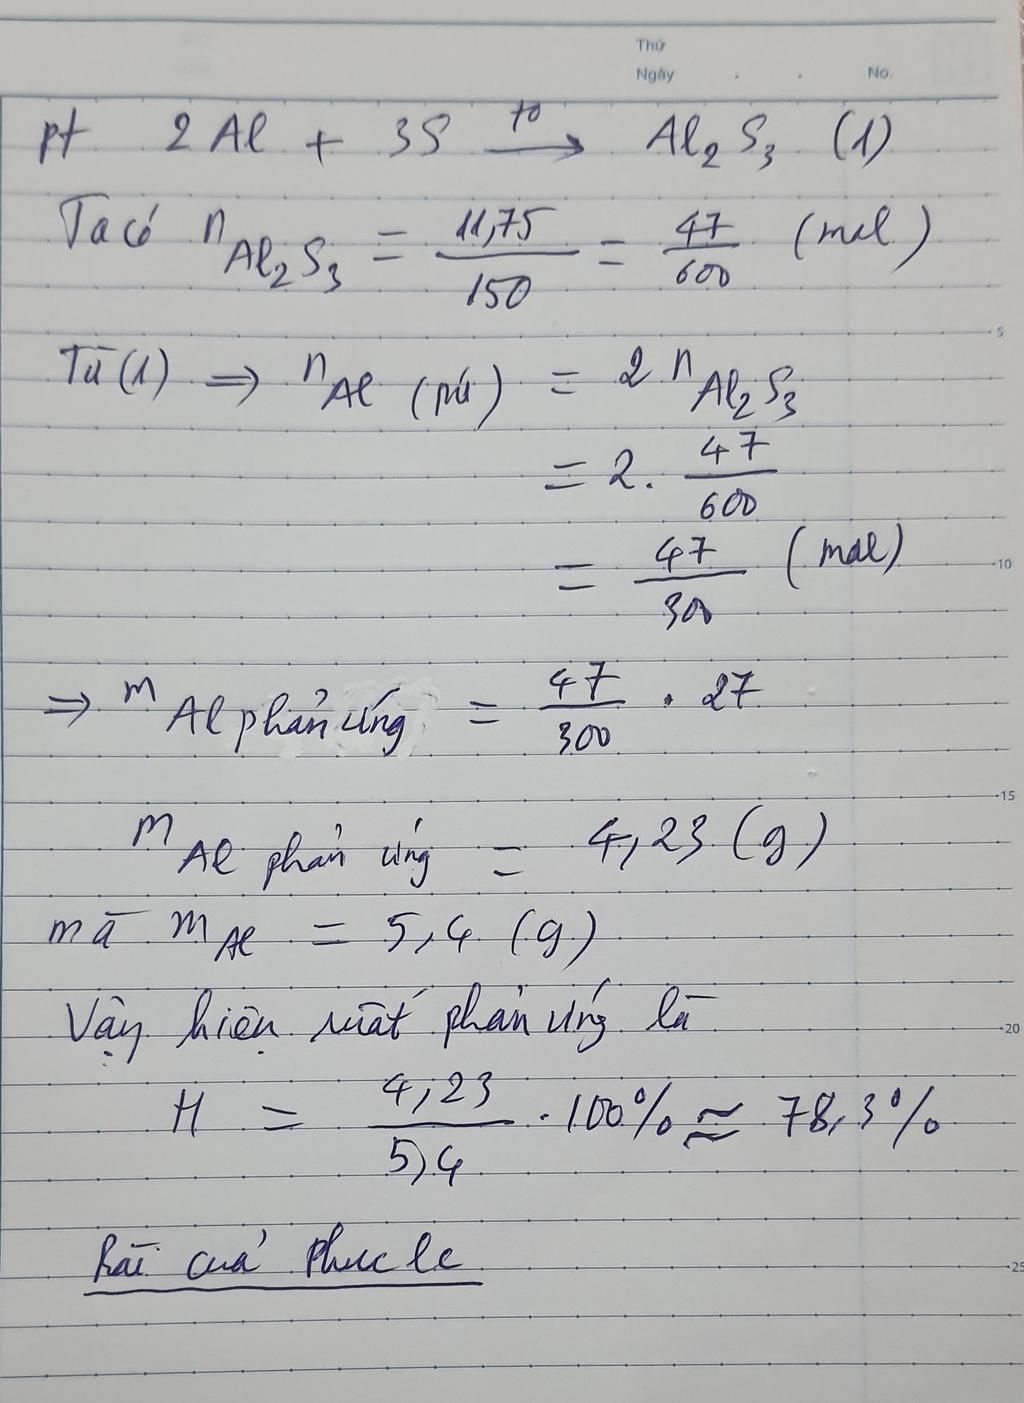 Thứ
Ngày . . No.
pt 2Al + 3S t° → Al₂S₃ (1)
Ta có n Al₂S₃ = 11,75/150 = 47/600 (mol)
5
Từ (1) ⇒ n Al (pứ) = 2 n Al₂S₃
= 2. 47/600
= 47/300 (mol)
10
⇒ m Al phản ứng = 47/300 . 27
15
m Al phản ứng = 4,23 (g)
mà m Al = 5,4 (g)
Vậy hiệu suất phản ứng là
20
H = 4,23/5,4 . 100% ≈ 78,3%
Bài của Phuc le
25